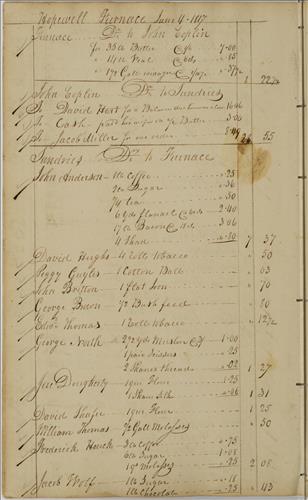 Hopewell Furnace June 4 - 1817
Furnace Dr. to John Coplin
for 35 lb Butter 7.00
14 lb Veal
1 22½
John Coplin Dr. to Sundries
To David Hart for a
To Cash - paid
To Jacob Miller for one order 55
Sundries Dr. to Furnace
John Anderson - 1 lb Coffee .25
2 lb Sugar .36
¼ Tea .50
6 yds flannel 2.40
17 lb Bacon 3.06
4 Shad .80 7 37
David Hughs - 4 Rolls tobacco 50
Peggy Guyles - 1 Cotton Ball 03
John Britton - 1 flat Iron 70
George Bacon - ½ Bush feed 20
Edwd Thomas - 1 Roll tobacco 12½
George North - 2½ yds Muslin 1.00
1 pair Scissors .25
2 Skanes thread .02 1 27
Jas Dougherty - 1 qur flour 1.25
1 Skane Silk .06 1 31
David Shafer - 1 qur flour 1 25
William Thomas - ½ Gall Molasses 50
Frederick Houck - 3 lb Coffee .75
6 lb Sugar 1.08
1 qt Molasses .25 2 08
Jacob Wolf - 1 lb Sugar .18
1 lb Chocolate .25 43